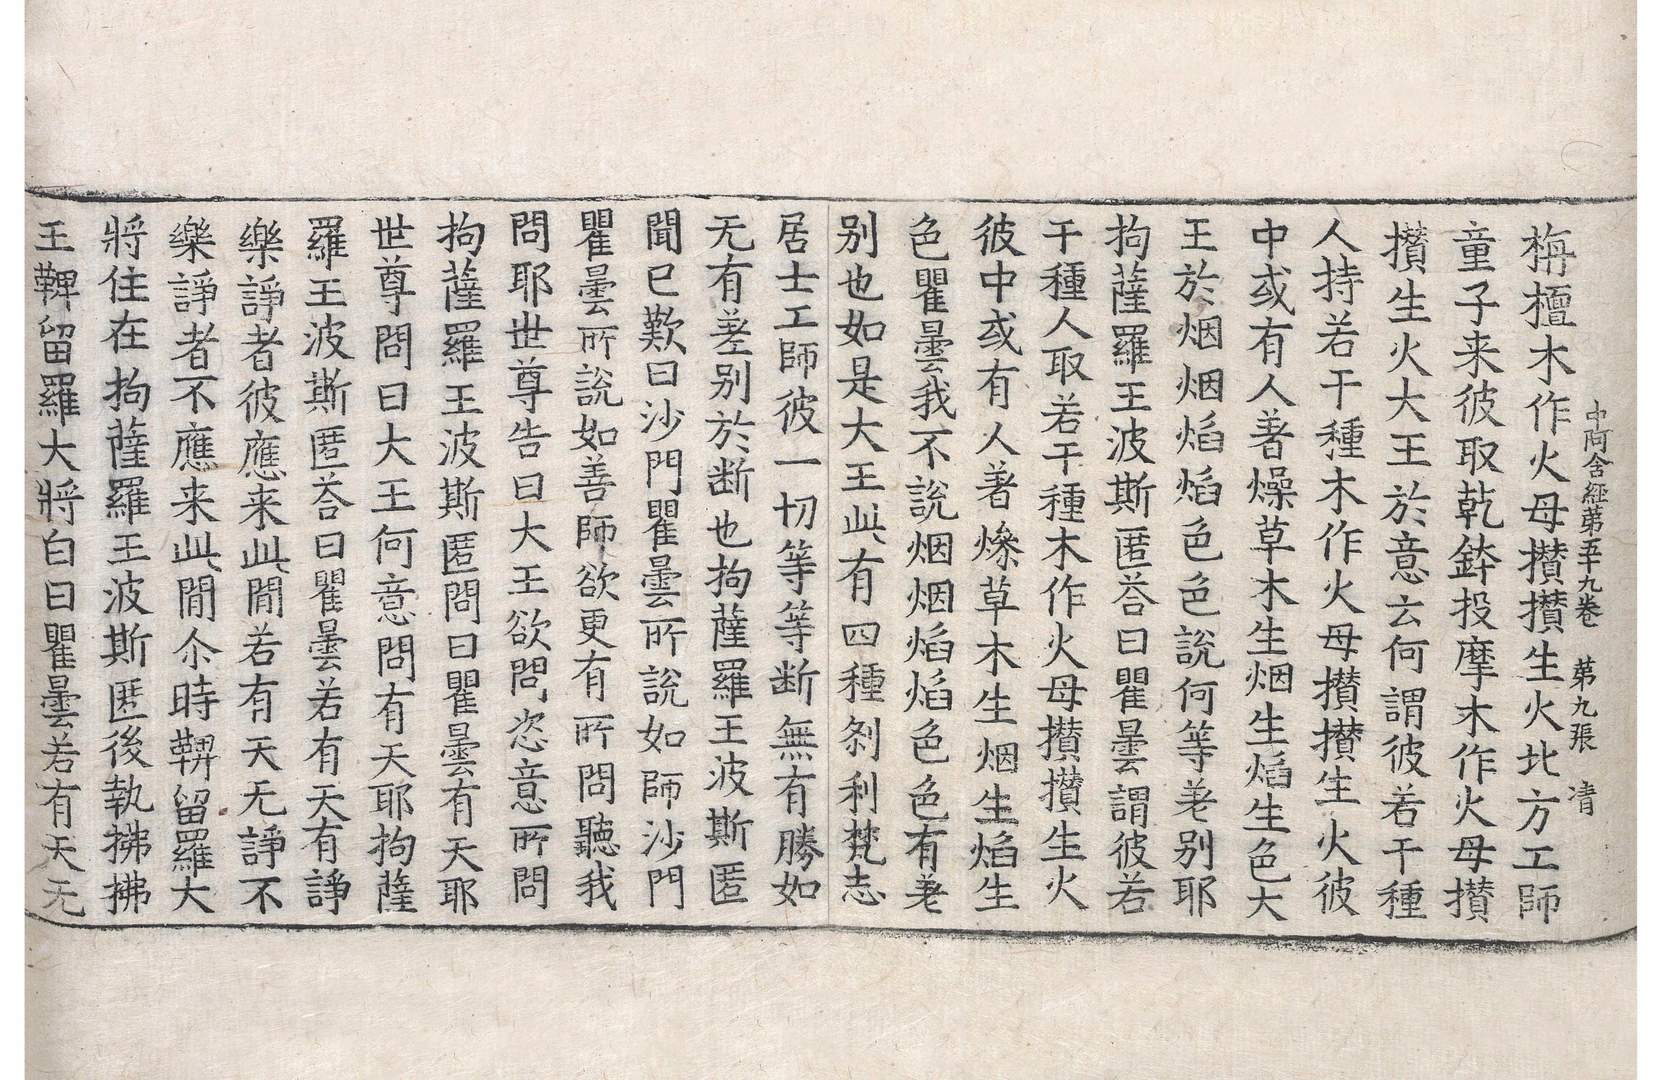 中阿含經第五十九卷 第九張 清
栴檀木作火母攅攅生火北方工師
童子来彼取乾鉢投摩木作火母攅
攅生火大王於意云何謂彼若干種
人持若干種木作火母攅攅生火彼
中或有人著燥草木生烟生焰生色大
王於烟烟焰焰色色說何等差別耶
拘薩羅王波斯匿荅曰瞿曇謂彼若
干種人取若干種木作火母攅攅生火
彼中或有人著燥草木生烟生焰生
色瞿曇我不說烟烟焰焰色色有差
別也如是大王此有四種刹利梵志
居士工師彼一切等等断無有勝如
无有差別於断也拘薩羅王波斯匿
聞已歎曰沙門瞿曇所說如師沙門
瞿曇所說如善師欲更有所問聽我
問耶世尊告曰大王欲問恣意所問
拘薩羅王波斯匿問曰瞿曇有天耶
世尊問曰大王何意問有天耶拘薩
羅王波斯匿荅曰瞿曇若有天有諍
樂諍者彼應来此間若有天无諍不
樂諍者不應来此間尒時鞞留羅大
將住在拘薩羅王波斯匿後執拂拂
王鞞留羅大將白曰瞿曇若有天无